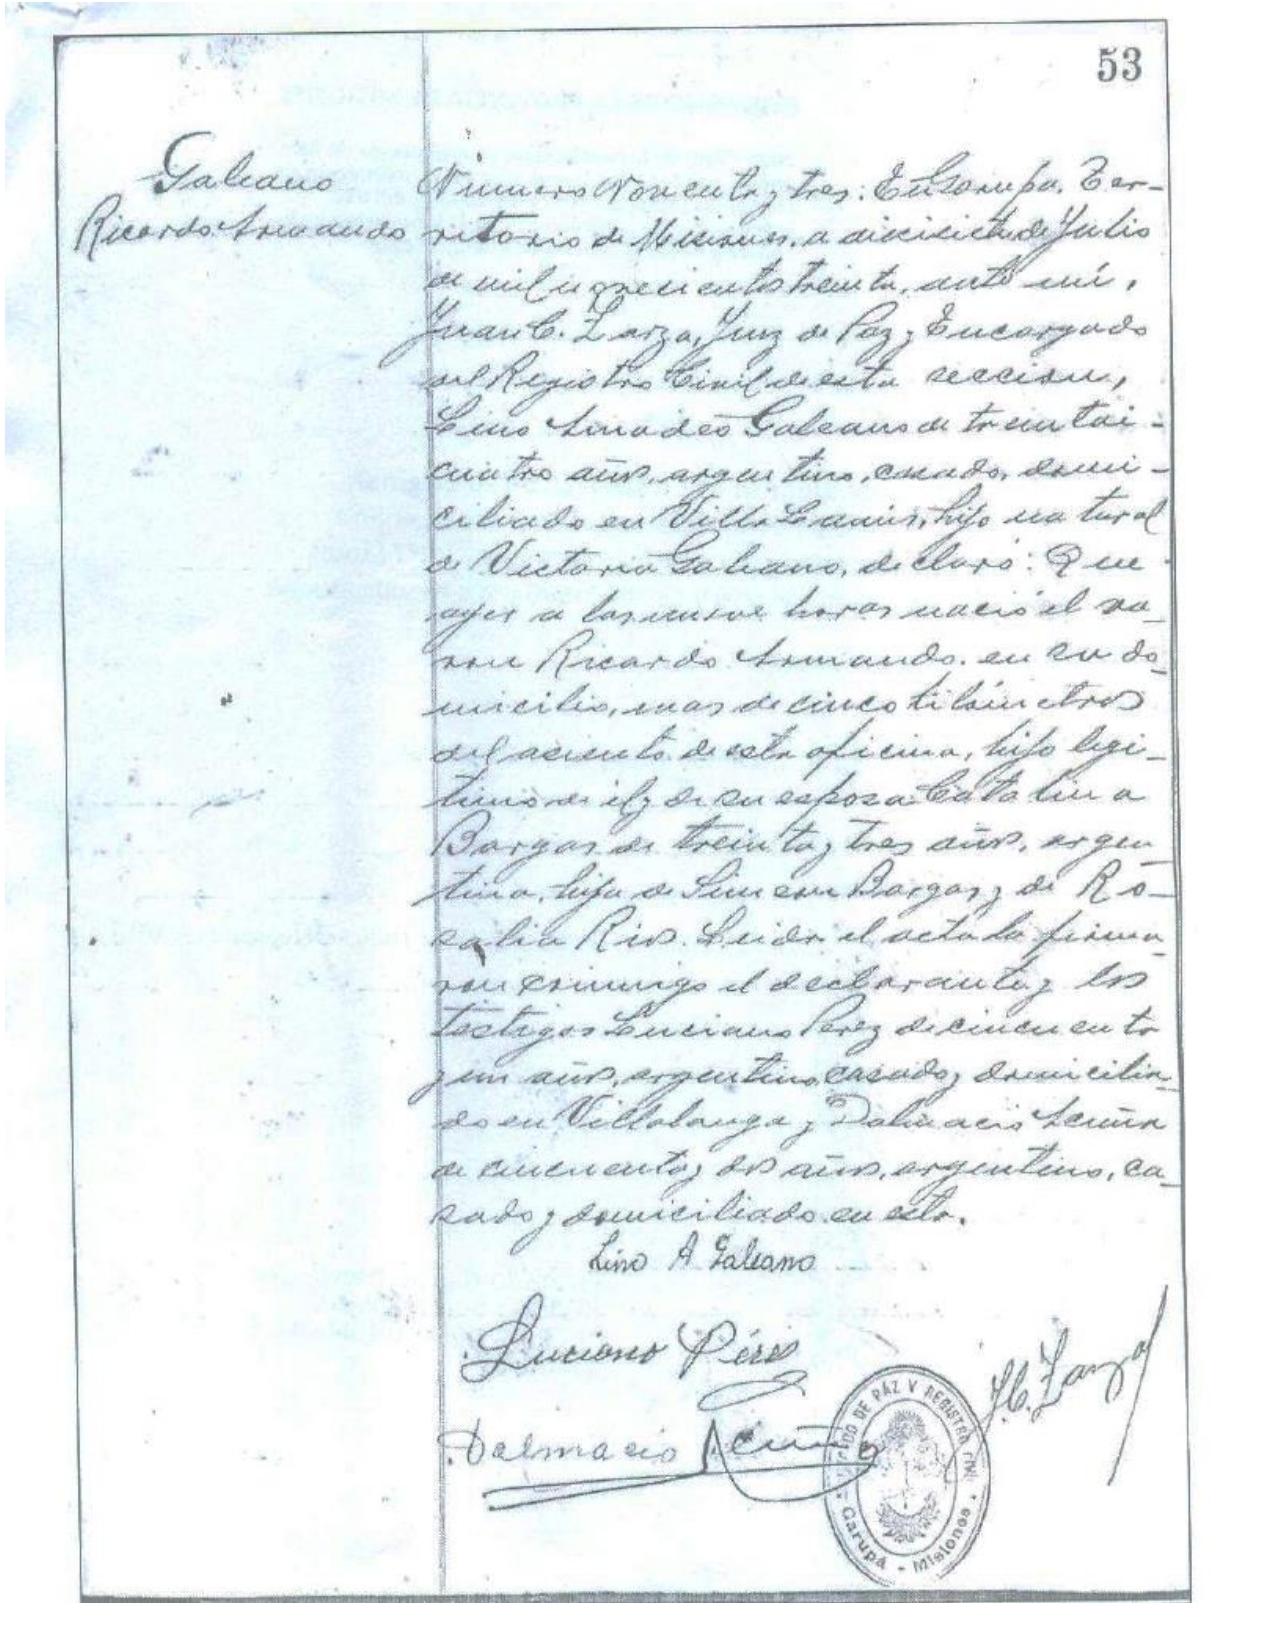 53
Galeano
Ricardo Armando
Número Noventa y tres: En Garupa, Ter-
ritorio de Misiones, a diecisiete de Julio
de mil novecientos treinta, ante mí,
Juan C. Zarza, Juez de Paz y Encargado
del Registro Civil de esta sección,
Lino Amadeo Galeano de treintai-
cuatro años, argentino, casado, domi-
ciliado en Villa Lanus, hijo natural
de Victoria Galeano, declaró: Que
ayer a las nueve horas nació el va-
ron Ricardo Armando, en su do-
micilio, mas de cinco kilómetros
del asiento de esta oficina, hijo legi-
timo de el y de su esposa Catalina
Bargas de treinta y tres años, argen-
tina, hija de Simeon Bargas y de Ro-
salia Rios. Leida el acta la firma-
ron conmigo el declarante y los
testigos Luciano Perez de cincuenta
y un años, argentino, casado y domicilia-
do en Villalonga y Dalmacio Acuña
de cincuenta y dos años, argentino, ca-
sado y domiciliado en esta.
Lino A Galeano
Luciano Pérez
Dalmacio Acuña
J.C. Zarza
JUZGADO DE PAZ Y REGISTRO CIVIL
Garupá - Misiones